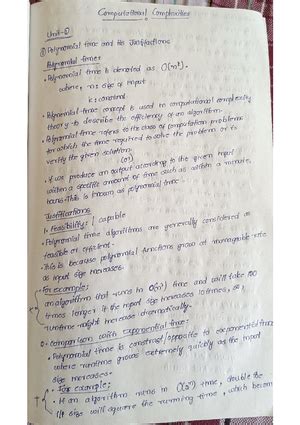 Computational Complexities
Unit-①
① Polynomial time and its Justifications
Polynomial time:
• Polynomial time is denoted as O(nᵏ).
where, n: size of input
k: constant
• Polynomial-time concept is used in computational complexity
theory to describe the efficiency of an algorithm.
• Polynomial time refers to the class of computation problems
for which the time required to solve the problem or to
verify the given solution.
(or)
• If we produce an output according to the given input
within a specific amount of time such as within a minute,
hours. This is known as polynomial time.
Justifications
1. Feasibility: capable
• Polynomial time algorithms are generally considered as
feasible or efficient.
• This is because polynomial functions grow at manageable rate
as input size increases.
For example:
an algorithm that runs in time and will take 100
times longer if the input size increases 10 times, so,
runtime might increase dramatically.
comparison with exponential time:
• Polynomial time is contrast/opposite to exponential time
where runtime grows extremely quickly as the input
size increases.
• For example:
• If an algorithm runs in time, double the
size will square the running time, which becom